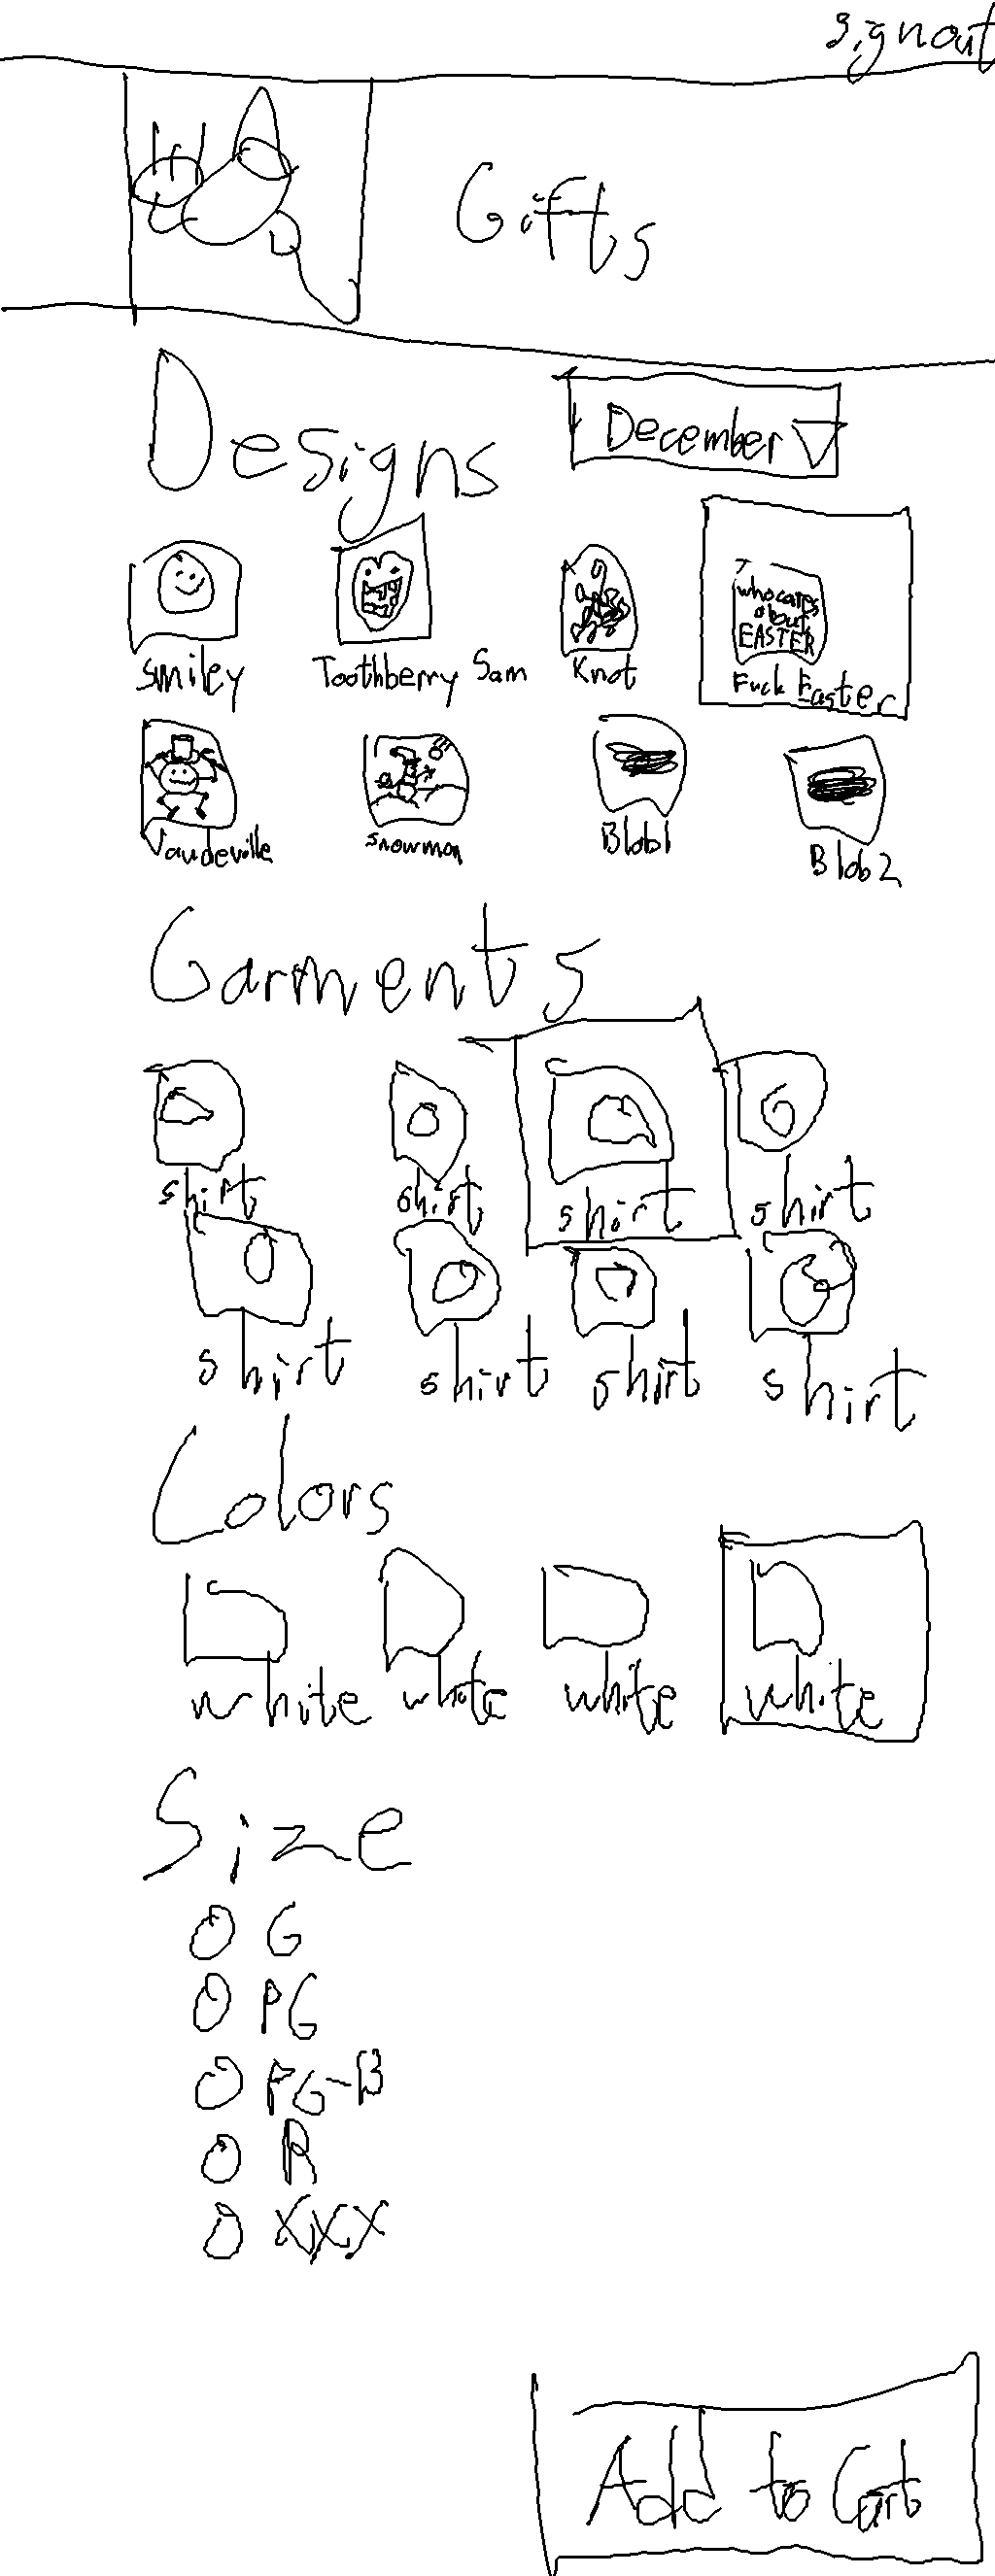 Signout
Gifts
Designs
December
who cares
about
EASTER
Smiley
Toothberry Sam
Knot
Fuck Easter
Vaudeville
Snowman
Blob1
Blob2
Garments
shirt shirt shirt shirt
shirt shirt shirt shirt
Colors
white white white white
Size
G
PG
PG-13
R
XXX
Add to Cart